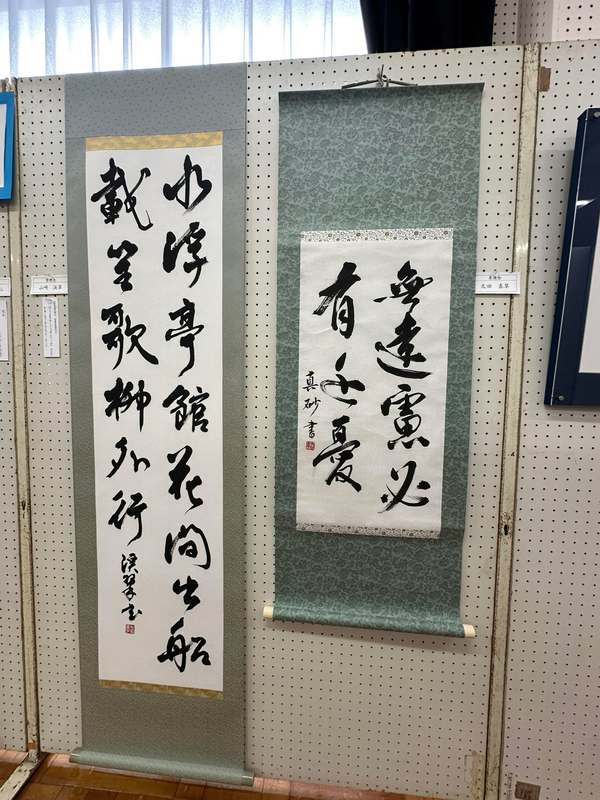 水浮亭館花間出船
載笙歌柳外行
渓翠書
無遠慮必
有近憂
真砂書